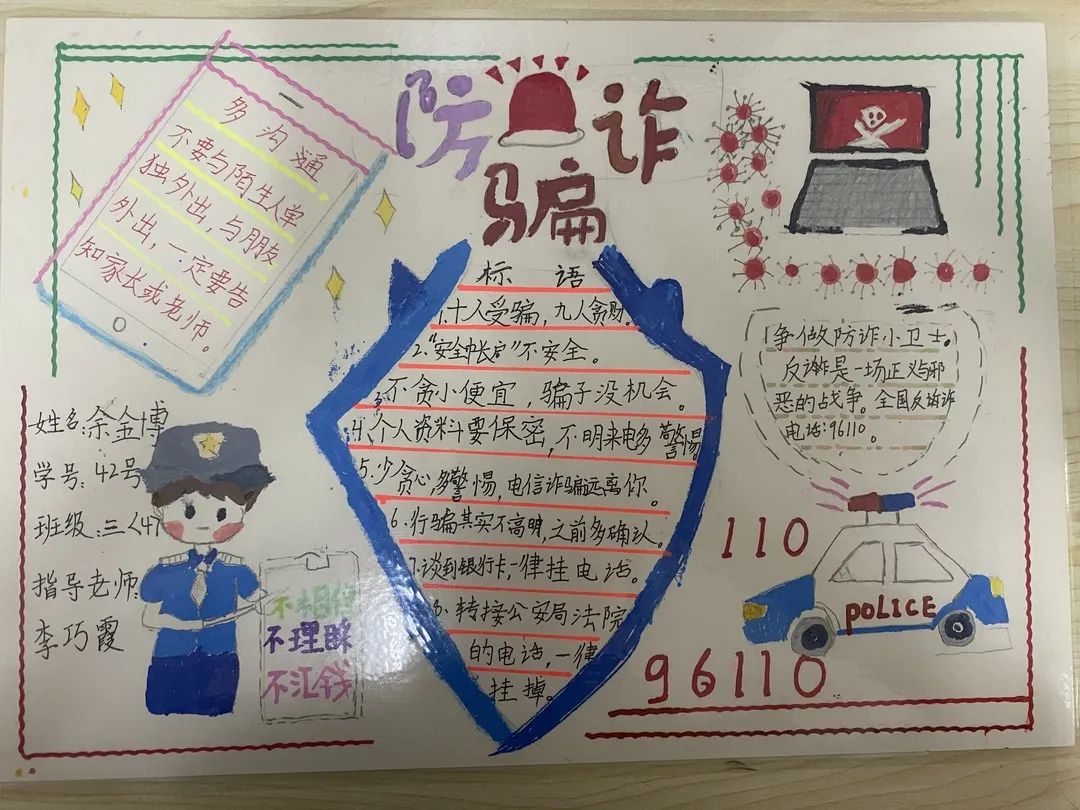 防诈
骗
多沟通
不要与陌生人单
独外出，与朋友
外出，一定要告
知家长或老师。
标语
1.十人受骗，九人贪财。
2."安全帐户"不安全。
3.不贪小便宜，骗子没机会。
4.个人资料要保密，不明来电多警惕
5.少贪心，多警惕，电信诈骗远离你。
6.行骗其实不高明，之前多确认。
7.谈到银行卡，一律挂电话。
8.转接公安局法院
的电话，一律
挂掉。
争做防诈小卫士。
反诈是一场正义与邪
恶的战争。全国反诈
电话：96110。
姓名：余金博
学号：42号
班级：三〈4〉
指导老师：
李巧霞
不相信
不理睬
不汇钱
110
POLICE
96110